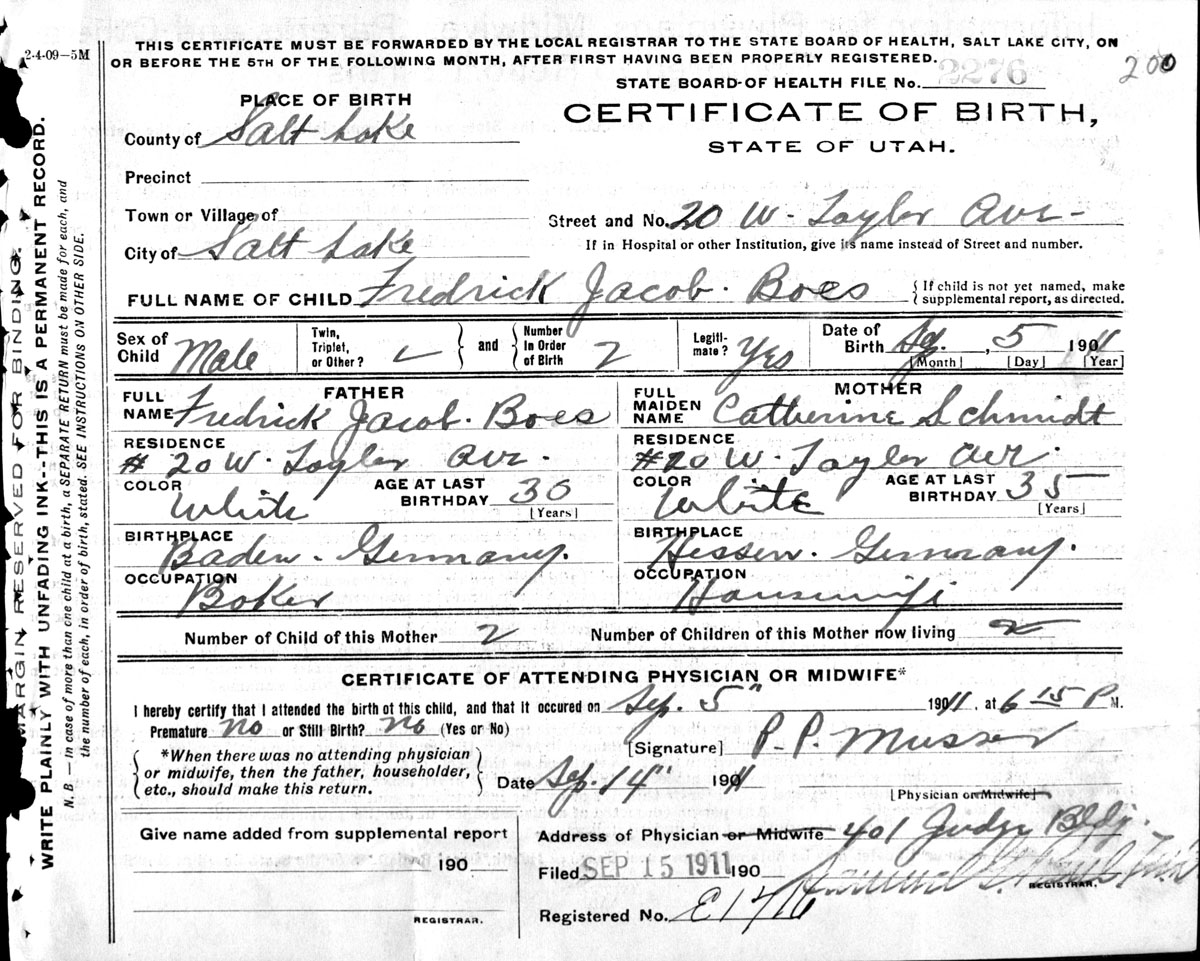 2-4-09—5M
THIS CERTIFICATE MUST BE FORWARDED BY THE LOCAL REGISTRAR TO THE STATE BOARD OF HEALTH, SALT LAKE CITY, ON
OR BEFORE THE 5TH OF THE FOLLOWING MONTH, AFTER FIRST HAVING BEEN PROPERLY REGISTERED.
200
STATE BOARD OF HEALTH FILE No. 2276
PLACE OF BIRTH
CERTIFICATE OF BIRTH,
STATE OF UTAH.
County of Salt Lake
Precinct
Town or Village of
Street and No. 20 W. Taylor Ave-
If in Hospital or other Institution, give its name instead of Street and number.
City of Salt Lake
FULL NAME OF CHILD Fredrick Jacob. Boes
{ If child is not yet named, make
supplemental report, as directed.
Sex of Child Male
Twin, Triplet, or Other?
and
Number in Order of Birth 2
Legiti-mate? Yes
Date of Birth , 5 1911
[Month] [Day] [Year]
FATHER
FULL NAME Fredrick Jacob. Boes
RESIDENCE
# 20 W. Taylor Ave.
COLOR White
AGE AT LAST BIRTHDAY 30
[Years]
BIRTHPLACE
Baden. Germany.
OCCUPATION
Baker
MOTHER
FULL MAIDEN NAME Catherine Schmidt
RESIDENCE
#20 W. Taylor Ave.
COLOR White
AGE AT LAST BIRTHDAY 35
[Years]
BIRTHPLACE
Hessen. Germany.
OCCUPATION
Housewife
Number of Child of this Mother 2
Number of Children of this Mother now living 2
CERTIFICATE OF ATTENDING PHYSICIAN OR MIDWIFE*
I hereby certify that I attended the birth of this child, and that it occured on Sep. 5" 1911, at 6 15 P M.
Premature No or Still Birth? No (Yes or No)
[Signature] P. P. Musser
*When there was no attending physician
or midwife, then the father, householder,
etc., should make this return.
Date Sep. 14" 1911
[Physician or Midwife]
Give name added from supplemental report
190
REGISTRAR.
Address of Physician or Midwife 401 Judge Bldg.
Filed SEP 15 1911 190
REGISTRAR.
Registered No. E1716
MARGIN RESERVED FOR BINDING.
WRITE PLAINLY WITH UNFADING INK--THIS IS A PERMANENT RECORD.
N. B.—in case of more than one child at a birth, a SEPARATE RETURN must be made for each, and
the number of each, in order of birth, stated. SEE INSTRUCTIONS ON OTHER SIDE.